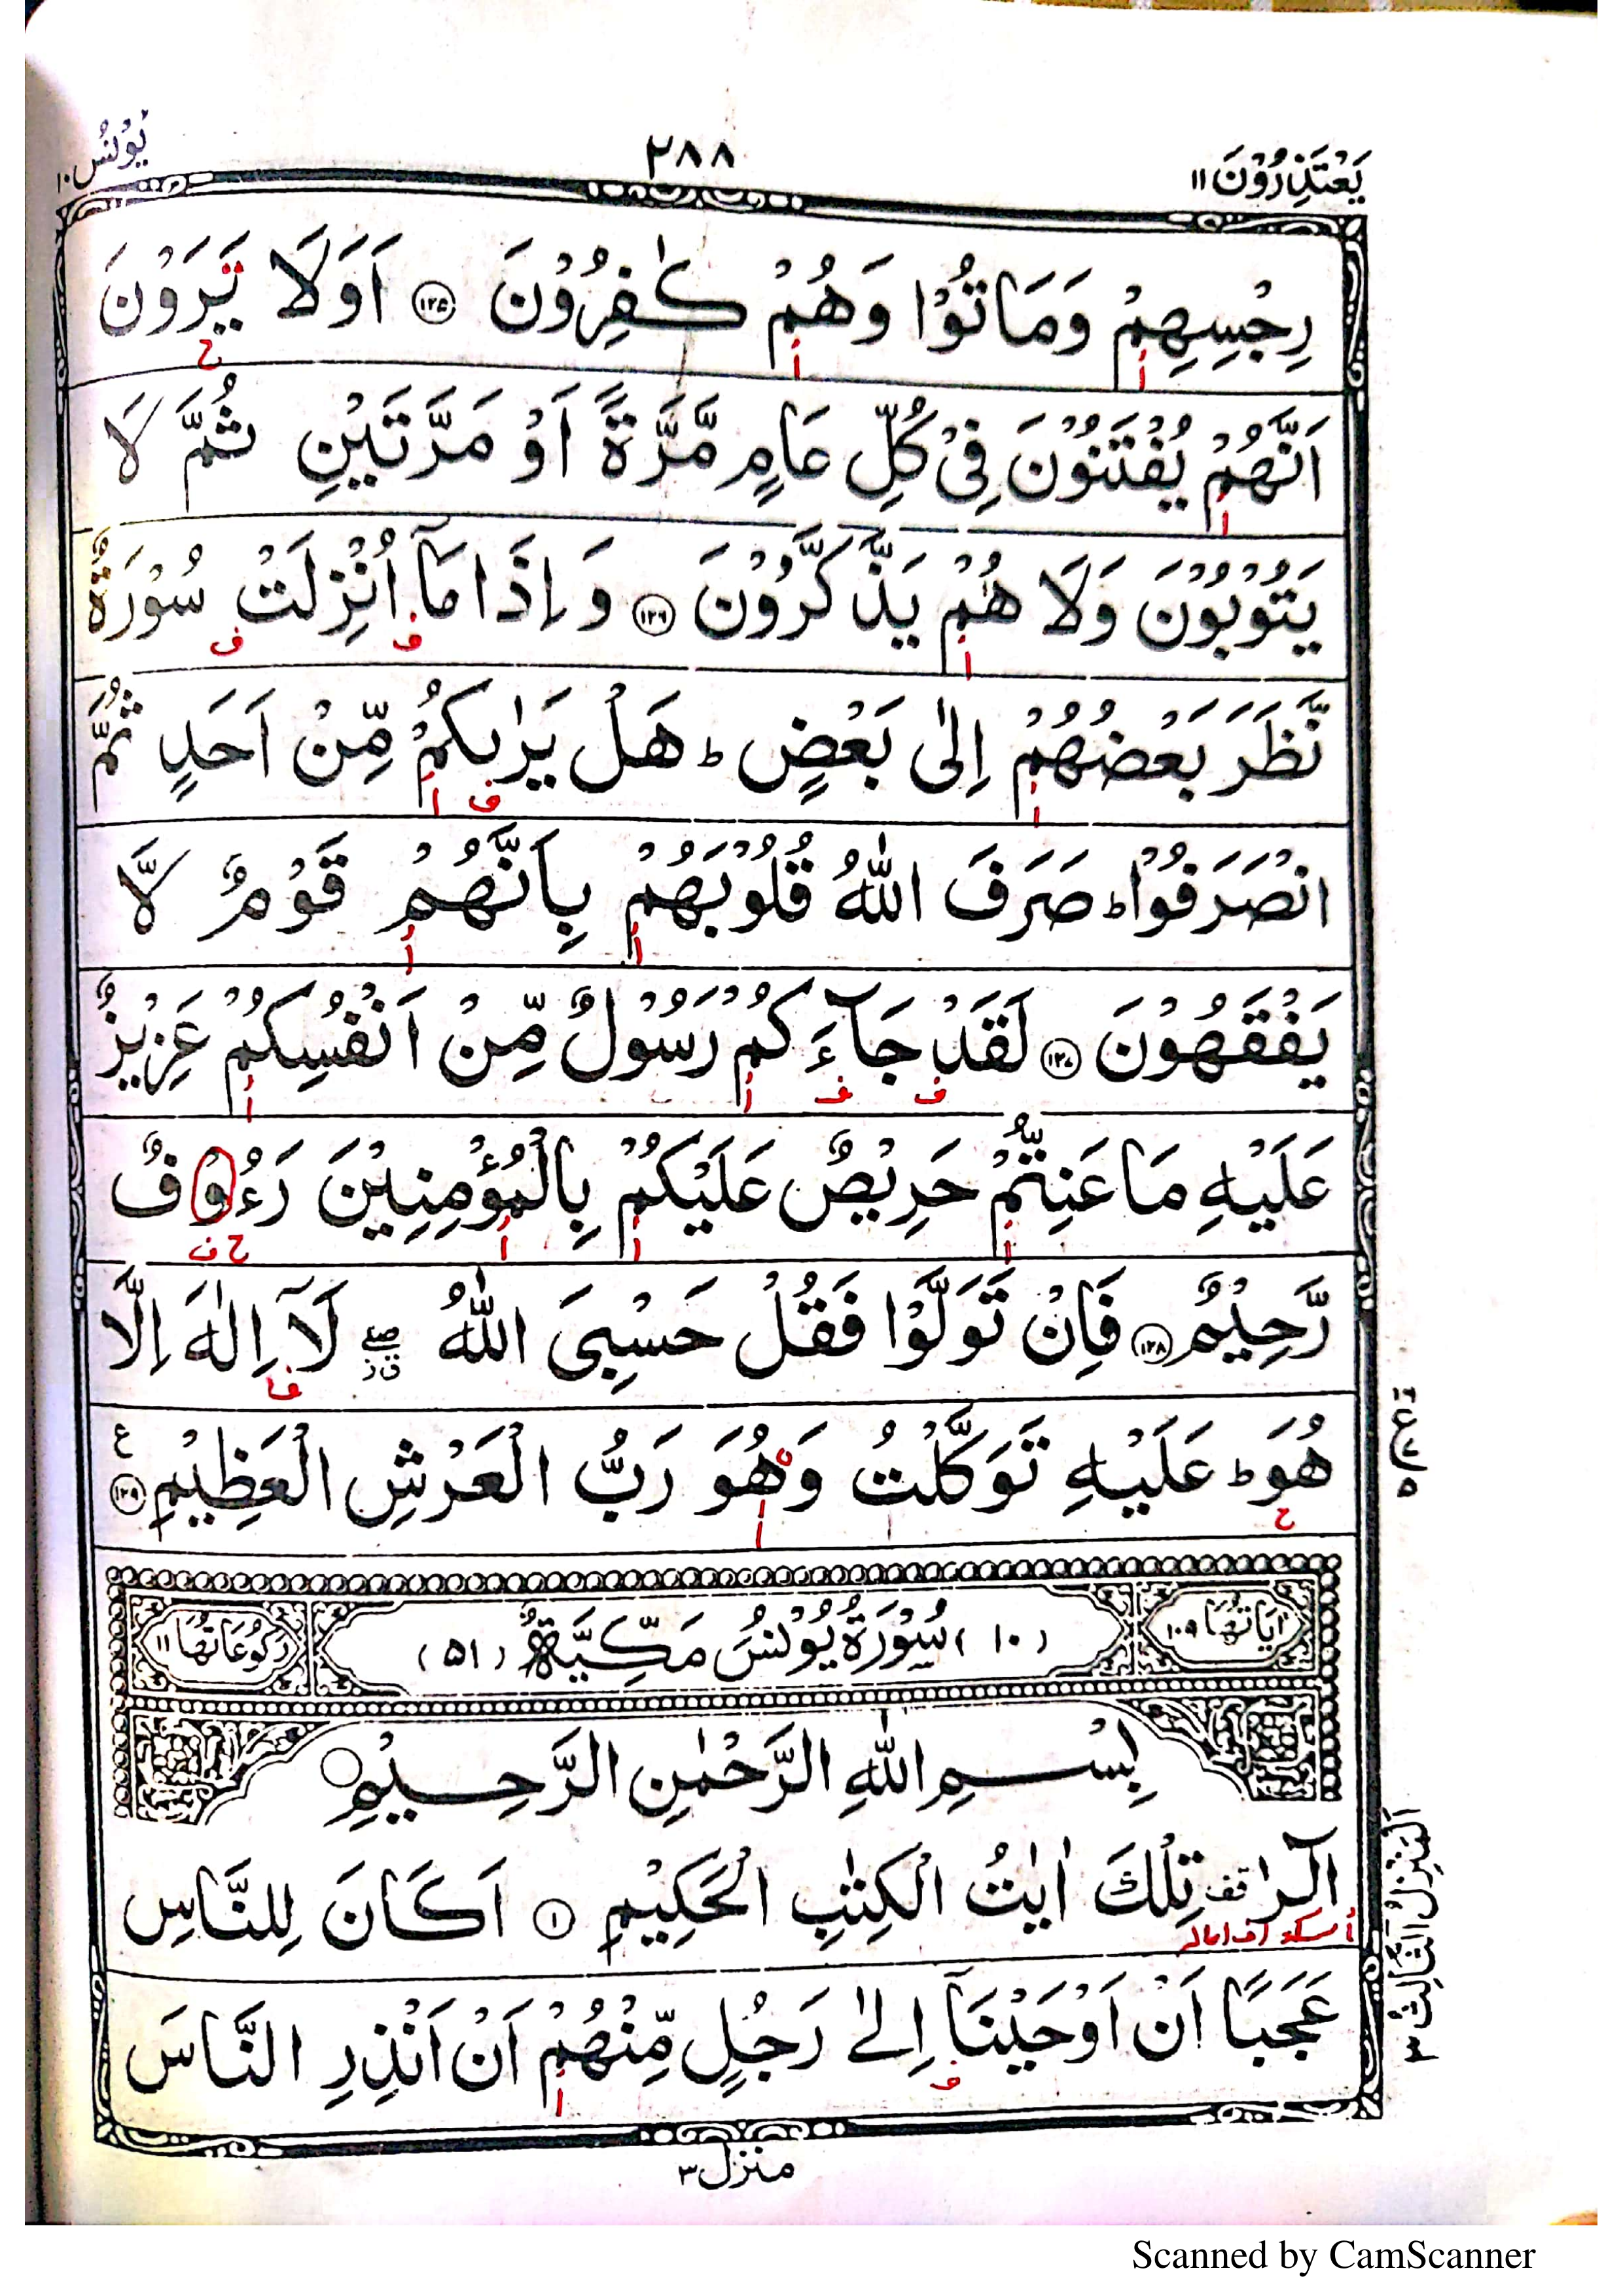 يَعْتَذِرُوْنَ ١١
٢٨٨
يُوْنُس ١٠
رِجْسِهِمْ وَمَاتُوْا وَهُمْ كٰفِرُوْنَ ۝١٢٥ اَوَلَا يَرَوْنَ
ح
أ
أ
اَنَّهُمْ يُفْتَنُوْنَ فِيْ كُلِّ عَامٍ مَّرَّةً اَوْ مَرَّتَيْنِ ثُمَّ لَا
أ
يَتُوْبُوْنَ وَلَا هُمْ يَذَّكَّرُوْنَ ۝١٢٦ وَ اِذَا مَآ اُنْزِلَتْ سُوْرَةٌ
أ ف ف
نَّظَرَ بَعْضُهُمْ اِلٰى بَعْضٍ ؕ هَلْ يَرٰىكُمْ مِّنْ اَحَدٍ ثُمَّ
أ ف أ
انْصَرَفُوْا ؕ صَرَفَ اللّٰهُ قُلُوْبَهُمْ بِاَنَّهُمْ قَوْمٌ لَّا
أ أ
يَفْقَهُوْنَ ۝١٢٧ لَقَدْ جَآءَكُمْ رَسُوْلٌ مِّنْ اَنْفُسِكُمْ عَزِيْزٌ
ف ف أ أ
عَلَيْهِ مَا عَنِتُّمْ حَرِيْصٌ عَلَيْكُمْ بِالْمُؤْمِنِيْنَ رَءُوْفٌ
أ أ أ ح ف
رَّحِيْمٌ ۝١٢٨ فَاِنْ تَوَلَّوْا فَقُلْ حَسْبِيَ اللّٰهُ ۖ لَآ اِلٰهَ اِلَّا
هُوَ ؕ عَلَيْهِ تَوَكَّلْتُ وَهُوَ رَبُّ الْعَرْشِ الْعَظِيْمِ ۝١٢٩ ع
ح أ
اٰيَاتُهَا ١٠٩
(١٠) سُوْرَةُ يُوْنُسَ مَكِّيَّةٌ (٥١)
رُكُوْعَاتُهَا ١١
بِسْمِ اللّٰهِ الرَّحْمٰنِ الرَّحِيْمِ
الٓرٰ قف تِلْكَ اٰيٰتُ الْكِتٰبِ الْحَكِيْمِ ۝١ اَكَانَ لِلنَّاسِ
عَجَبًا اَنْ اَوْحَيْنَآ اِلٰى رَجُلٍ مِّنْهُمْ اَنْ اَنْذِرِ النَّاسَ
ف أ
اَلْمَنْزِلُ الثَّالِث ٣
منزل ٣
Scanned by CamScanner